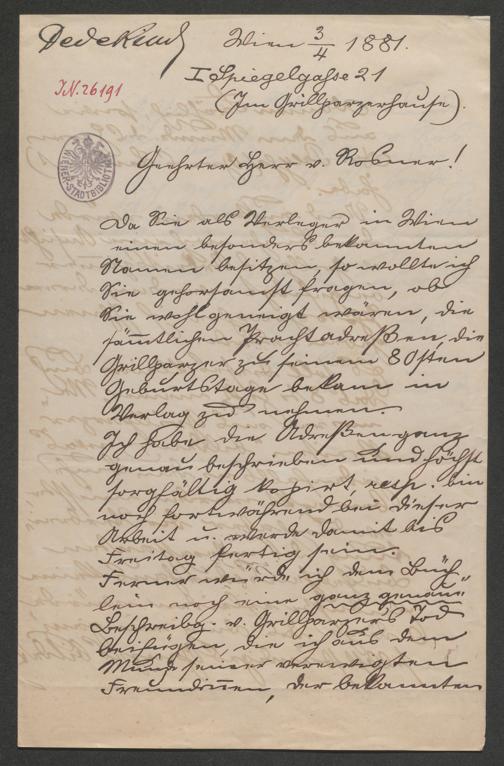 Dedekind
Wien 3/4 1881.
I Spiegelgasse 21
(Im Grillparzerhause).
J.N. 26191
WIENER STADTBIBLIOTHEK
Geehrter Herr v. Rosner!
Da Sie als Verleger in Wien
einen besonders bekannten
Namen besitzen, so wollte ich
Sie gehorsamst fragen, ob
Sie wohl geneigt wären, die
sämmtlichen Prachtadreßen, die
Grillparzer zu seinem 80sten
Geburtstage bekam in
Verlag zu nehmen.
Ich habe die Adreßen ganz
genau beschrieben und höchst
sorgfältig kopirt, resp. bin
noch fortwährend bei dieser
Arbeit u. werde damit bis
Freitag fertig sein.
Ferner würde ich dem Büch-
lein noch eine ganz genaue
Beschreibg. v. Grillparzers Tod
beifügen, die ich aus dem
Munde seiner verewigten
Freundinnen, der bekannten